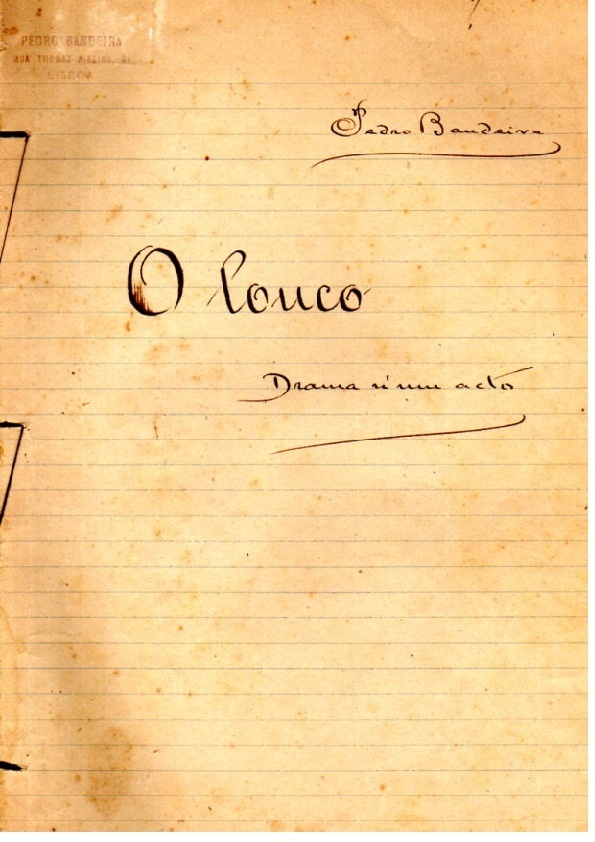 PEDRO BANDEIRA
RUA THOMAZ RIBEIRO,
LISBOA
Pedro Bandeira
O louco
Drama n'um acto